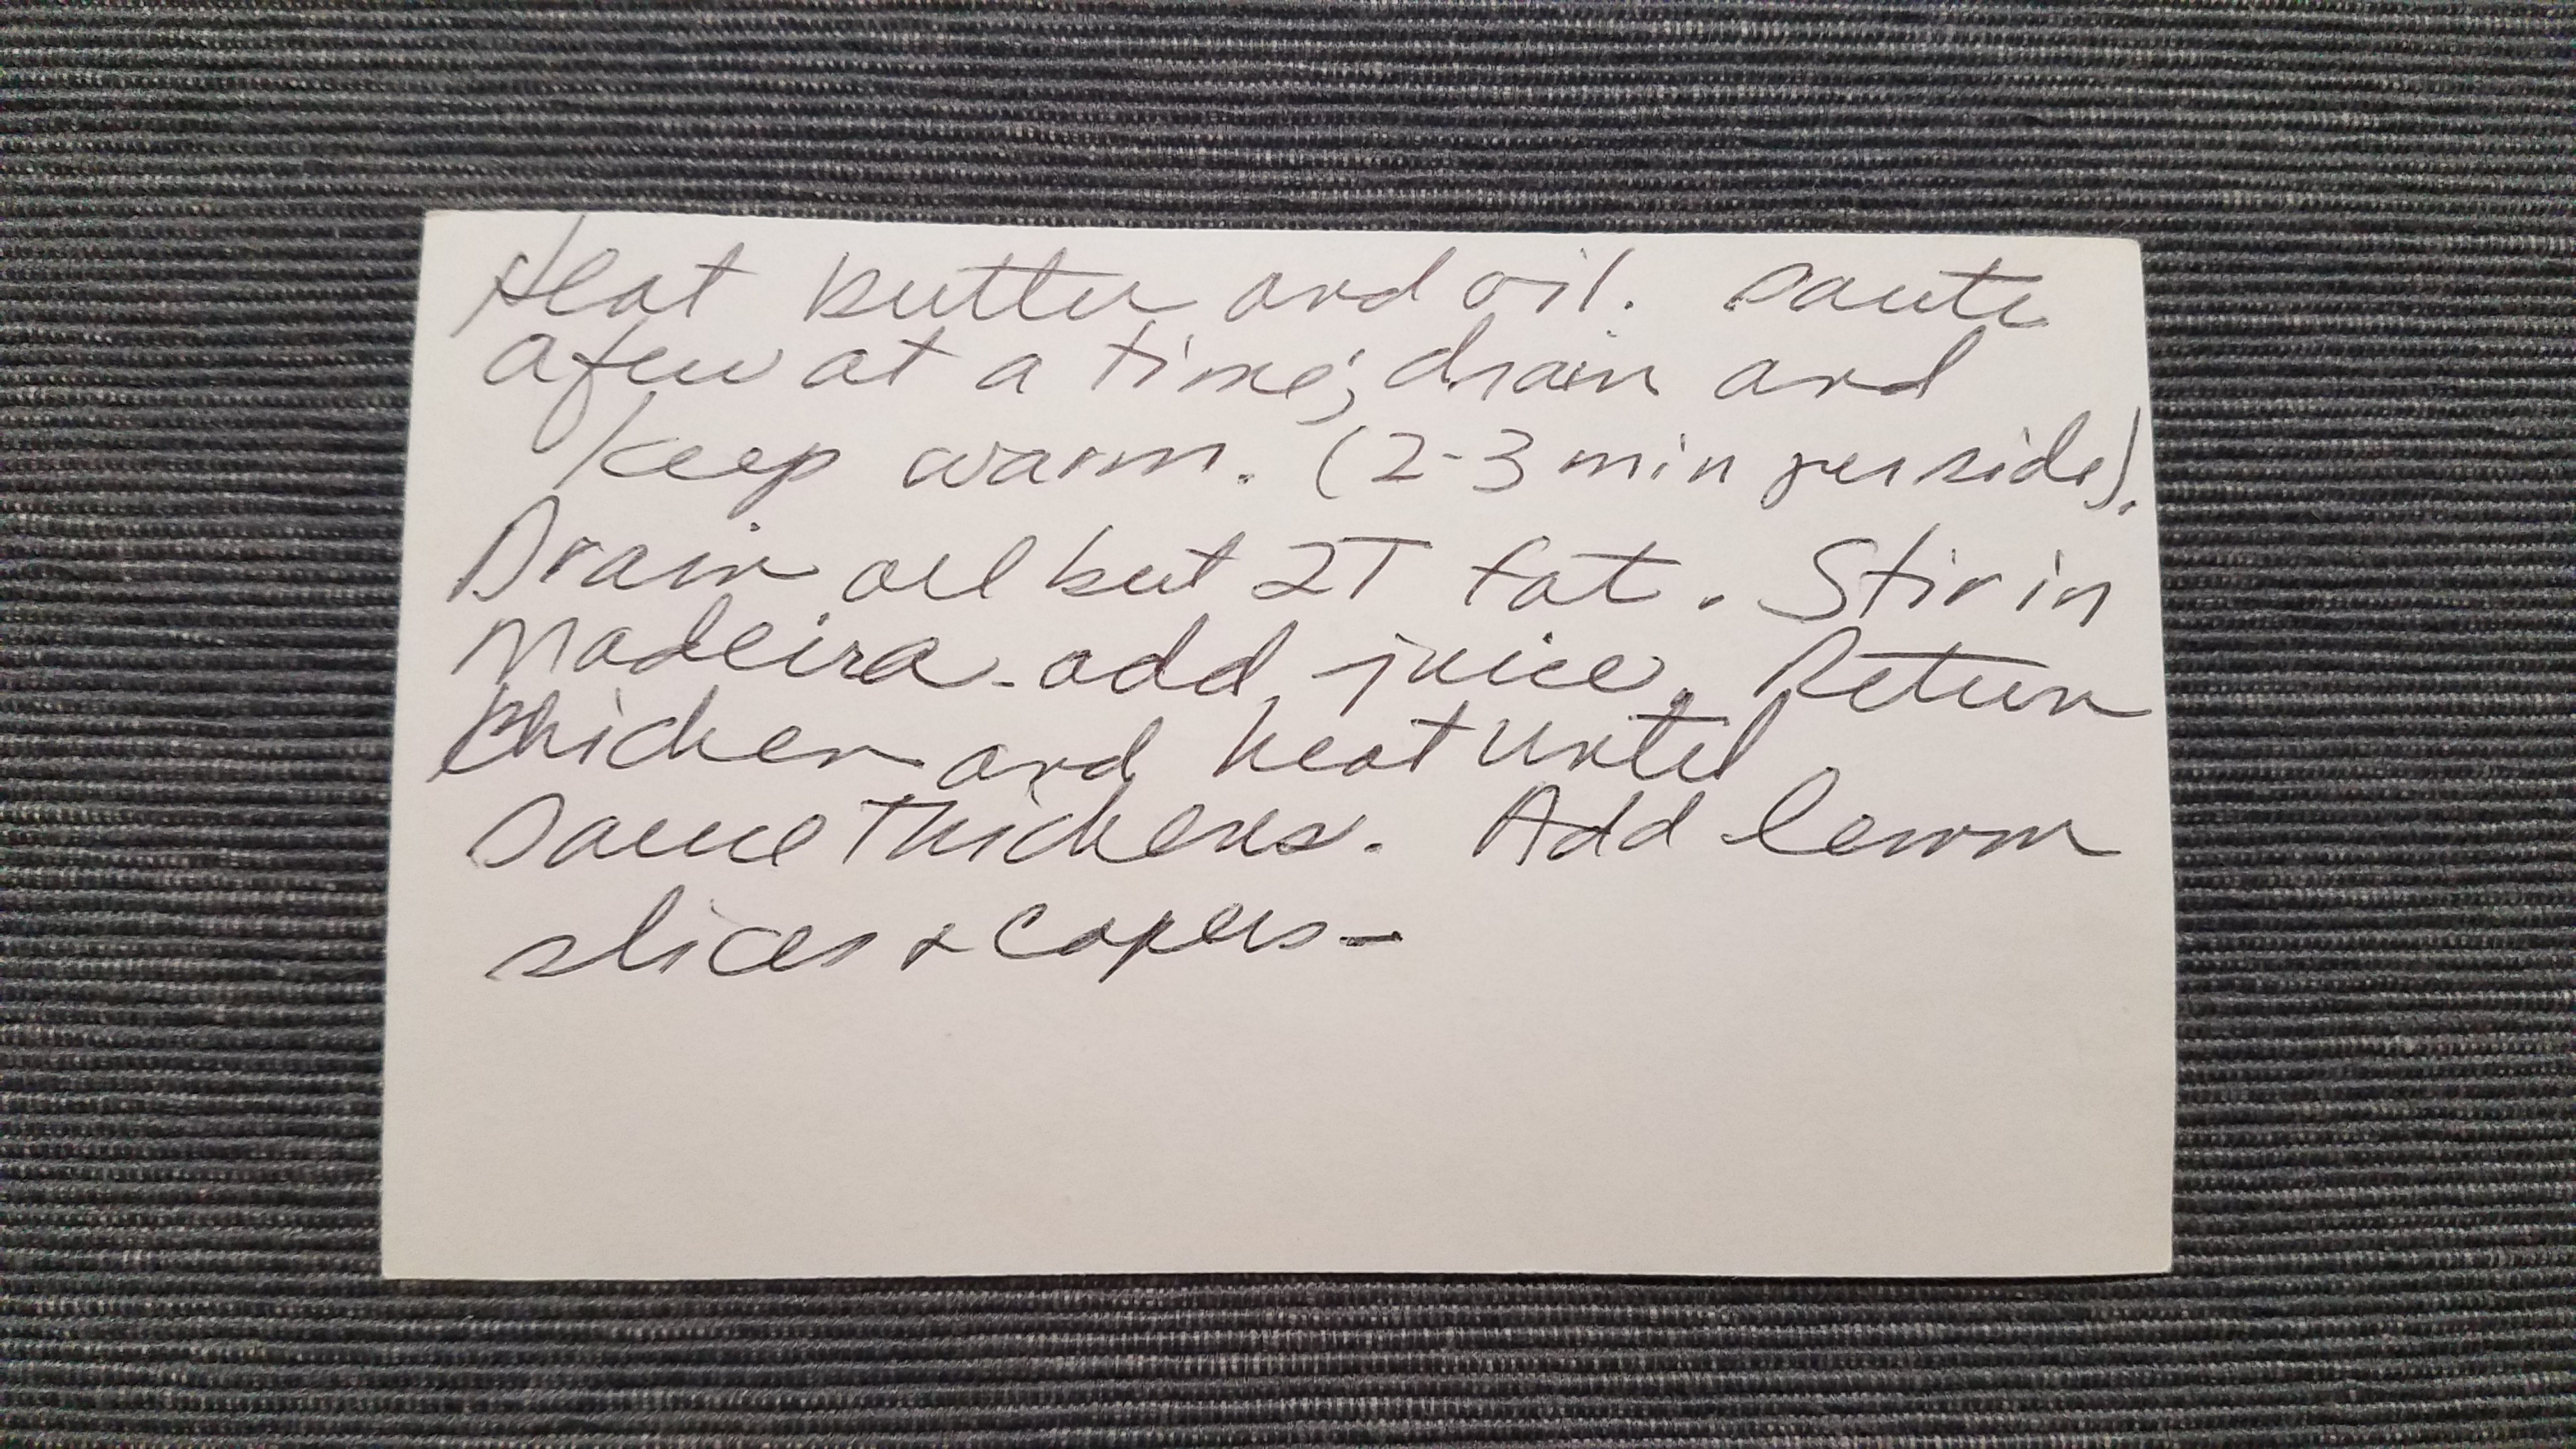 Heat butter and oil. Saute
a few at a time; drain and
keep warm. (2-3 min per side).
Drain all but 2T fat. Stir in
Madeira - add juice. Return
chicken and heat until
sauce thickens. Add lemon
slices & capers-